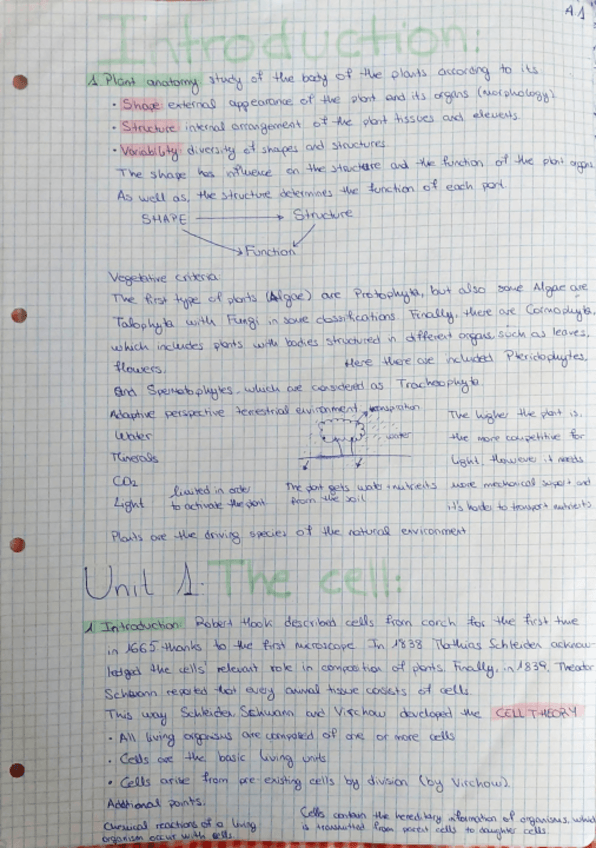 A1
Introduction:
1. Plant anatomy: study of the body of the plants according to its
· Shape: external appearance of the plant and its organs (Morphology)
· Structure: internal arrangement of the plant tissues and elements.
· Variability: diversity of shapes and structures
The shape has influence on the structure and the function of the plant organs
As well as, the structure determines the function of each part.
SHAPE → Structure
Function
Vegetative criteria
The first type of plants (Algae) are Protophyta, but also some Algae are
Talophyta with Fungi in some classifications. Finally, there are Cormophyta,
which includes plants with bodies structured in different organs, such as leaves,
flowers. Here there are included Pteridophytes,
and Spermatophytes, which are considered as Tracheophyta
Adaptive perspective terrestrial environment
transpiration
Water
water
Minerals
CO2
Light
limited in order
to activate the plant
The plant gets water + nutrients
from the soil
The higher the plant is,
the more competitive for
light, however it needs
more mechanical support and
it's harder to transport nutrients
Plants are the driving species of the natural environment
Unit 1: The cell:
1 Introduction: Robert Hook described cells from corch for the first time
in 1665 thanks to the first microscope. In 1838 Mathias Schleiden acknow-
ledged the cells' relevant role in composition of plants. Finally, in 1839, Theodor
Schwann reported that every animal tissue cosists of cells.
This way Schleiden, Schwann and Virchow developed the CELL THEORY
· All living organisms are composed of one or more cells
· Cells are the basic living units
· Cells arise from pre existing cells by division (by Virchow).
Additional points.
Chemical reactions of a living
organism occur with cells.
Cells contain the hereditary information of organisms, which
is transmitted from parent cells to daughter cells.